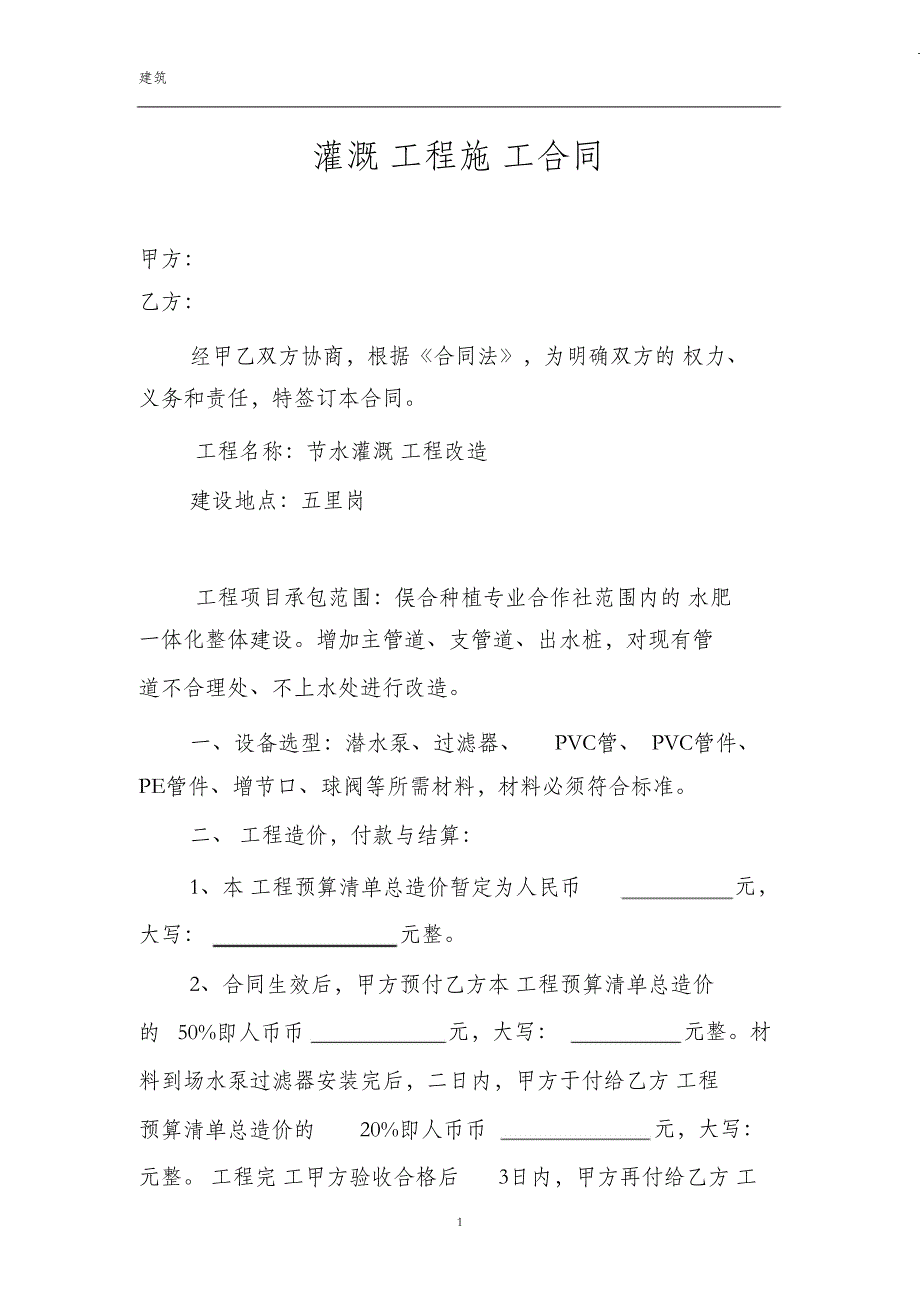 建筑
灌溉 工程施 工合同
甲方：
乙方：
经甲乙双方协商，根据《合同法》，为明确双方的 权力、
义务和责任，特签订本合同。
工程名称：节水灌溉 工程改造
建设地点：五里岗
工程项目承包范围：俣合种植专业合作社范围内的 水肥
一体化整体建设。增加主管道、支管道、出水桩，对现有管
道不合理处、不上水处进行改造。
一、设备选型：潜水泵、过滤器、 PVC管、 PVC管件、
PE管件、增节口、球阀等所需材料，材料必须符合标准。
二、 工程造价，付款与结算：
1、本 工程预算清单总造价暂定为人民币 元，
大写： 元整。
2、合同生效后，甲方预付乙方本 工程预算清单总造价
的 50%即人币币 元，大写： 元整。材
料到场水泵过滤器安装完后，二日内，甲方于付给乙方 工程
预算清单总造价的 20%即人币币 元，大写：
元整。 工程完 工甲方验收合格后 3日内，甲方再付给乙方 工
1